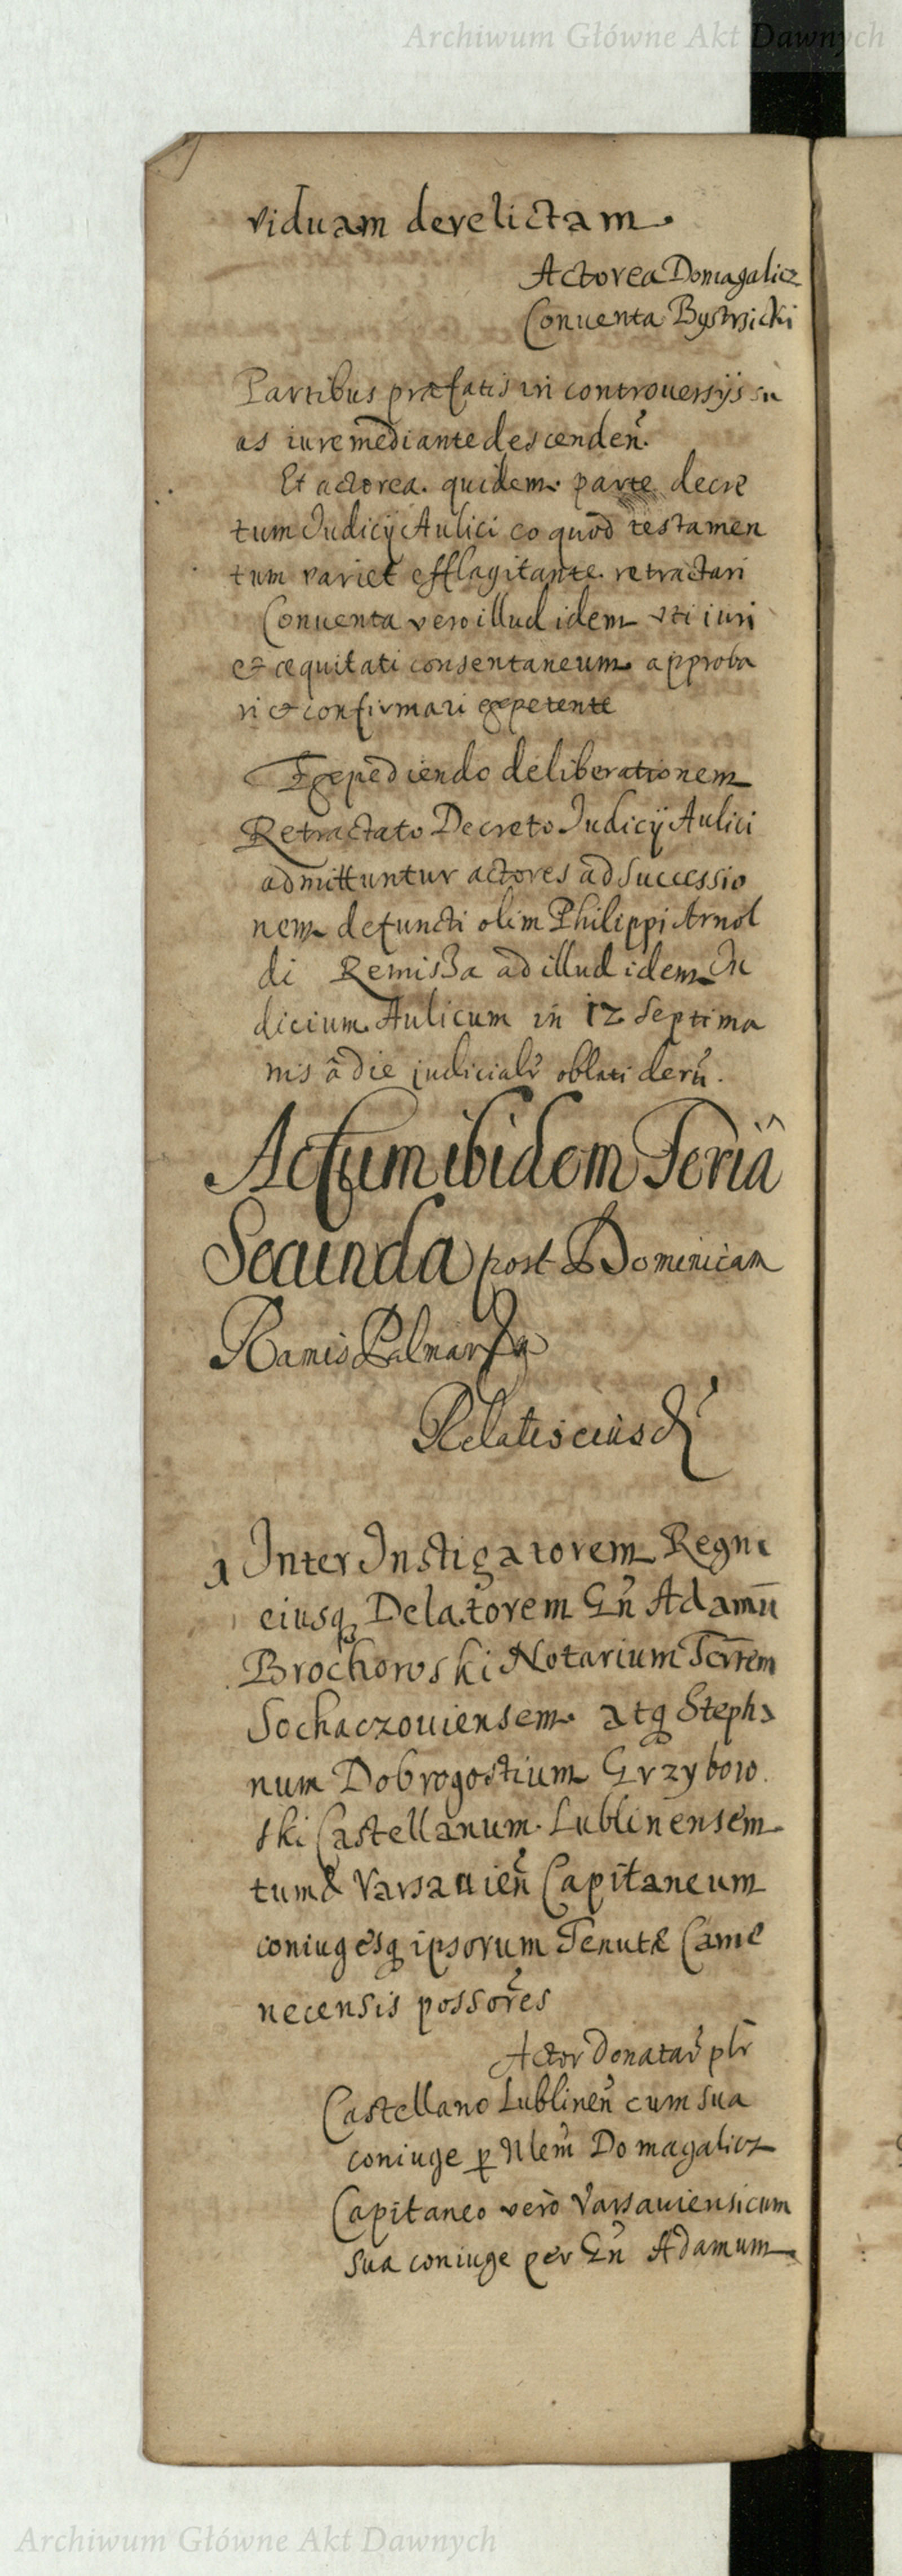 Archiwum Główne Akt Dawnych
viduam derelictam.
Actorea Domagalicz
Conuenta Bystrzicki
Partibus præfatis in controuersijs su
as iure mediante descendeñ.
Et actorea. quidem. parte decre
tum Judicij Aulici eo quod testamen
tum variet efflagitante. retractari
Conuenta vero illud idem vti iuri
et æquitati consentaneum. approba
ri et confirmari expetente
Expediendo deliberationem
Retractato Decreto Judicij Aulici
admittuntur actores ad Successio
nem defuncti olim Philippi Arnol
di Remissa ad illud idem Ju
dicium Aulicum in 12 Septima
nis â die judicialr oblati
Actum ibidem Feriâ
Secunda post Dominicam
Ramis Palmar
Relatio eiusd
1 Inter Instigatorem Regni
eiusq Delatorem Gñ Adamū
Brochowski Notarium Terrem
Sochaczouiensem. atq Stepha
num Dobrogostium Grzybow
ski Castellanum. Lublinensem
tum & Varsauieñ Capitaneum
coniugesq ipsorum Tenutæ Came
necensis possores
Actor Donatar plr
Castellano Lublineñ cum sua
coniuge p Nlem Domagalicz
Capitaneo vero Varsauiensi cum
sua coniuge per Gñ Adamum
Archiwum Główne Akt Dawnych